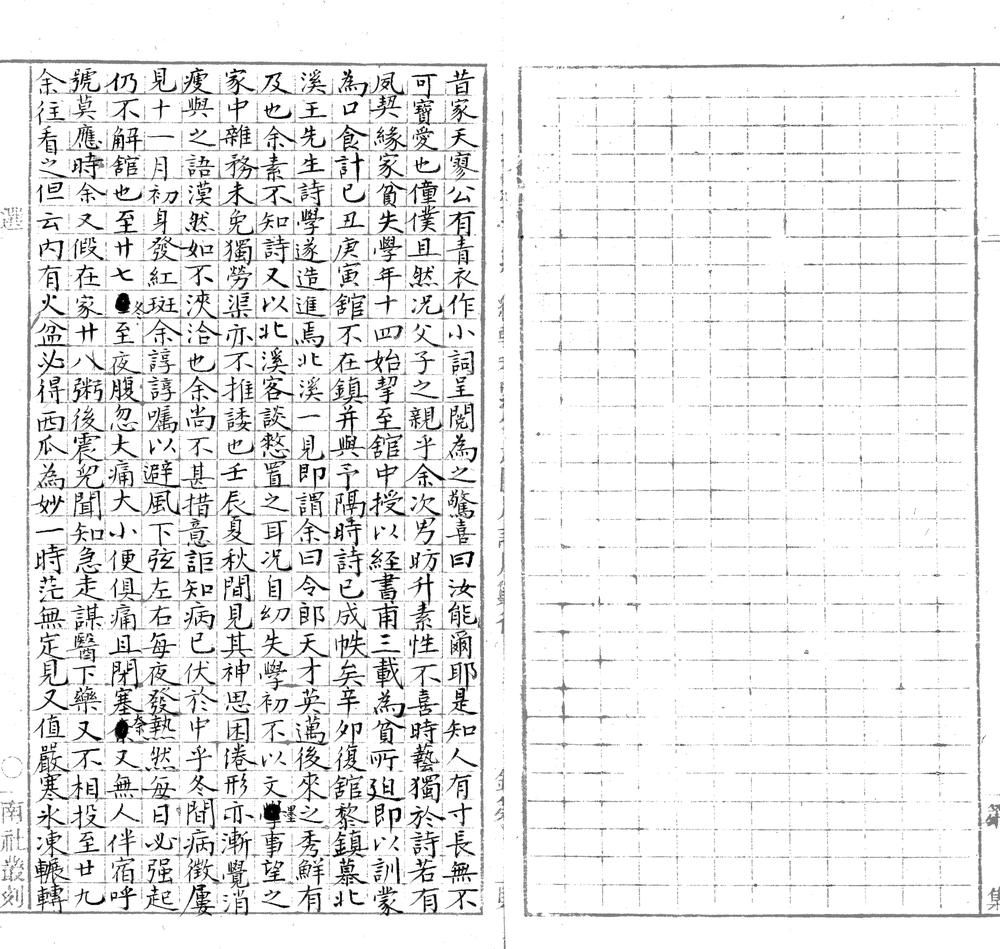 昔家天寥公有青衣作小詞呈閱為之驚喜曰汝能爾耶是知人有寸長無不
可寶愛也僮僕且然况父子之親乎余次男昉升素性不喜時藝獨於詩若有
夙契緣家貧失學年十四始挈至舘中授以經書甫三載為貧所廹即以訓蒙
為口食計已丑庚寅舘不在鎮并與予隔時詩已成帙矣辛夘復舘黎鎮慕北
溪王先生詩學遂造進焉北溪一見即謂余曰令郎天才英邁後來之秀鮮有
及也余素不知詩又以北溪客談憗置之耳况自幼失學初不以文墨事望之
家中雜務未免獨勞渠亦不推諉也壬辰夏秋間見其神思困倦形亦漸覺消
瘦與之語漠然如不浹洽也余尚不甚措意詎知病已伏於中乎冬間病徵屢
見十一月初身發紅斑余諄諄囑以避風下弦左右每夜發熱然每日必强起
仍不解舘也至廿七冬至夜腹忽大痛大小便俱痛且閉塞余又無人伴宿呼
號莫應時余又假在家廿八粥後震兒聞知急走謀醫下藥又不相投至廿九
余往看之但云內有火盆必得西瓜為妙一時茫無定見又值嚴寒氷凍輾轉
選
○
南社叢刻
集